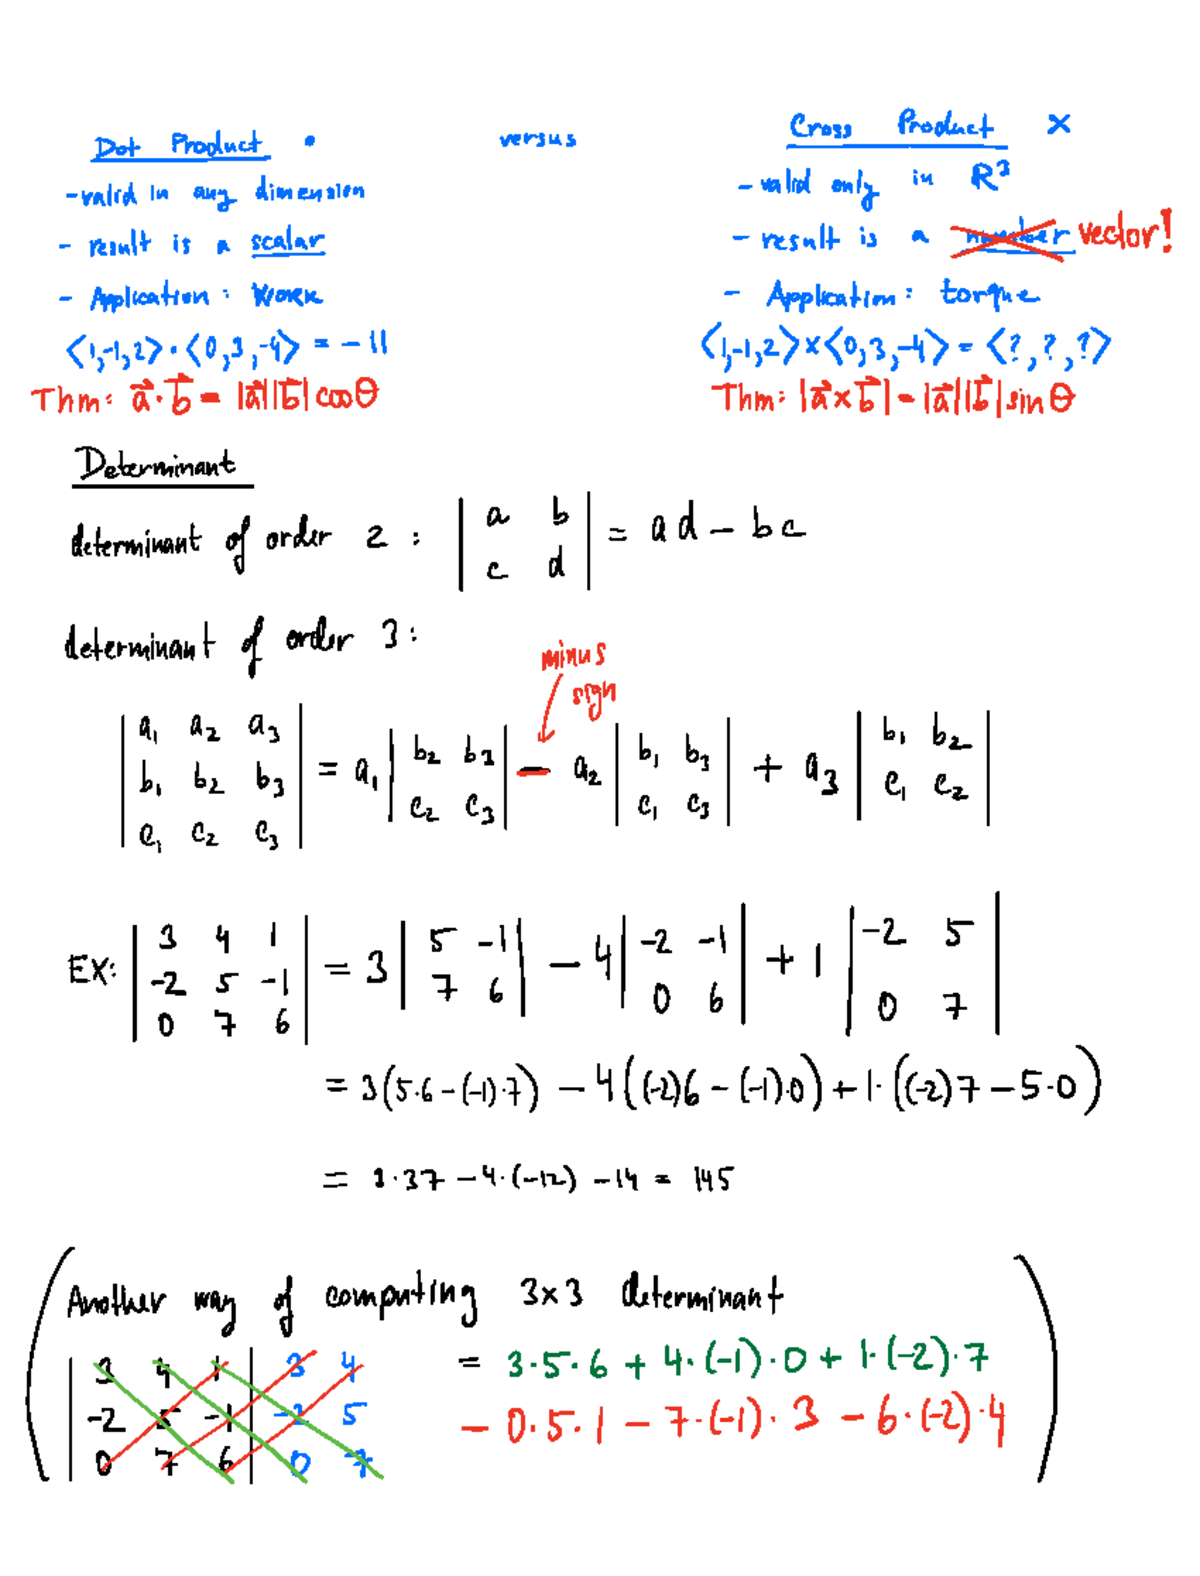 Dot Product •
versus
Cross Product ×
- valid in any dimension
- result is a scalar
- Application: Work
⟨1,-1,2⟩·⟨0,3,-4⟩ = -11
Thm: a⃗·b⃗ = |a⃗||b⃗|cosθ
- valid only in R³
- result is a number vector!
- Application: torque
⟨1,-1,2⟩×⟨0,3,-4⟩ = ⟨?,?,?⟩
Thm: |a⃗×b⃗| = |a⃗||b⃗|sinθ
Determinant
determinant of order 2: | a b | = ad - bc
| c d |
determinant of order 3:
minus
sign
| a₁ a₂ a₃ | = a₁ | b₂ b₃ | - a₂ | b₁ b₃ | + a₃ | b₁ b₂ |
| b₁ b₂ b₃ | | c₂ c₃ | | c₁ c₃ | | c₁ c₂ |
| c₁ c₂ c₃ |
EX: | 3 4 1 | = 3 | 5 -1 | - 4 | -2 -1 | + 1 | -2 5 |
| -2 5 -1 | | 7 6 | | 0 6 | | 0 7 |
| 0 7 6 |
= 3(5·6-(-1)·7) - 4((-2)6-(-1)·0) + 1·((-2)7-5·0)
= 3·37 - 4·(-12) - 14 = 145
(Another way of computing 3×3 determinant
| 3 4 1 | 3 4 = 3·5·6 + 4·(-1)·0 + 1·(-2)·7
| -2 5 -1 | -2 5 - 0·5·1 - 7·(-1)·3 - 6·(-2)·4
| 0 7 6 | 0 7 )